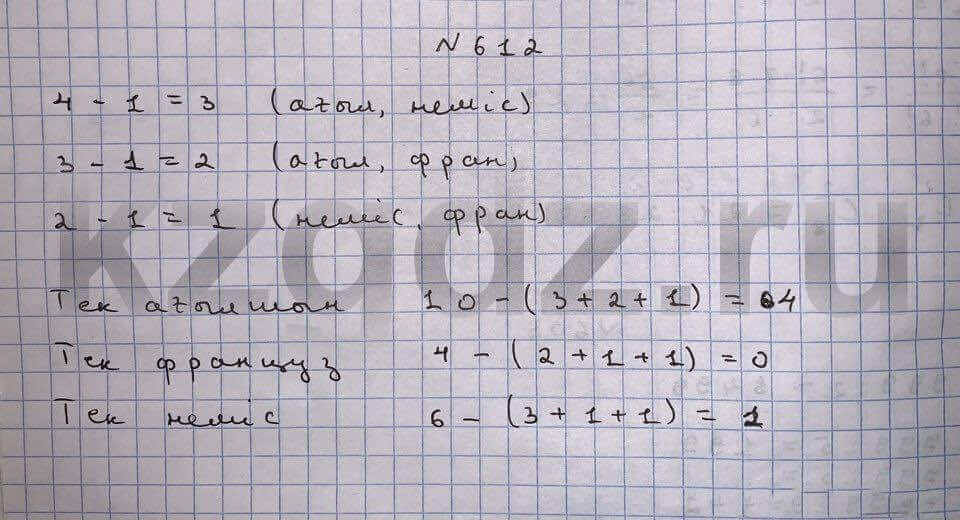 N 612
4 - 1 = 3 (ағыл, неміс)
3 - 1 = 2 (ағыл, фран)
2 - 1 = 1 (неміс, фран)
kzgdz.ru
Тек ағылшын 10 - (3 + 2 + 1) = 4
Тек француз 4 - (2 + 1 + 1) = 0
Тек неміс 6 - (3 + 1 + 1) = 1